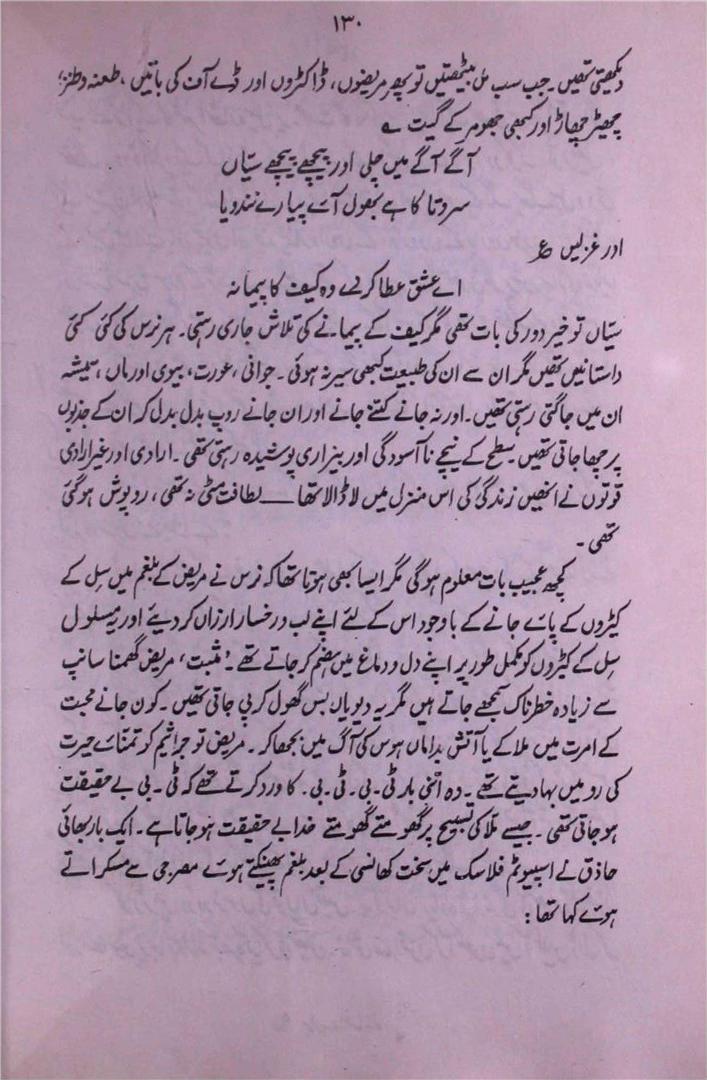 ۱۳۰
دیکھتی تھیں۔ جب سب مل بیٹھتیں تو پھر مریضوں، ڈاکٹروں اور ڈے آف کی باتیں، طعنہ و طنز؛
چھیڑ چھاڑ اور کبھی جھومر کے گیت ؎
آگے آگے میں چلی اور پیچھے پیچھے سیّاں
سروتا کاہے بھول آئے پیارے نندویا
اور غزلیں ؏
اے عشق عطا کر دے وہ کیف کا پیمانہ
سیّاں تو خیر دور کی بات تھی مگر کیف کے پیمانے کی تلاش جاری رہتی۔ ہر نرس کی کئی کئی
داستانیں تھیں مگر ان سے ان کی طبیعت کبھی سیر نہ ہوئی۔ جوانی، عورت، بیوی اور ماں، ہمیشہ
ان میں جاگتی رہتی تھیں۔ اور نہ جانے کتنے جانے اور ان جانے روپ بدل بدل کر ان کے جذبوں
پر چھا جاتی تھیں۔ سطح کے نیچے ناآسودگی اور بیزاری پوشیدہ رہتی تھی۔ ارادی اور غیر ارادی
قوتوں نے انھیں زندگی کی اس منزل میں لا ڈالا تھا ــــ لطافت مٹی نہ تھی، روپوش ہوگئی
تھی۔
کچھ عجیب بات معلوم ہوگی مگر ایسا بھی ہوتا تھا کہ نرس نے مریض کے بلغم میں سِل کے
کیڑوں کے پائے جانے کے باوجود اس کے لئے اپنے لب و رخسار ارزاں کر دیئے اور یہ مسلول
سِل کے کیڑوں کو مکمل طور پر اپنے دل و دماغ میں ہضم کر جاتے تھے۔ ’مثبت‘ مریض گھمنا سانپ
سے زیادہ خطرناک سمجھے جاتے ہیں مگر یہ دیویاں بس گھول کر پی جاتی تھیں۔ کون جانے محبت
کے امرت میں ملا کے یا آتش بداماں ہوس کی آگ میں بجھا کر۔ مریض تو جراثیم کو تمنائے حیرت
کی رو میں بہا دیتے تھے۔ وہ اتنی بار ٹی۔بی۔ ٹی۔بی۔ کا ورد کرتے تھے کہ ٹی۔بی بے حقیقت
ہو جاتی تھی۔ جیسے ملّا کی تسبیح پر گھومتے گھومتے خدا بے حقیقت ہو جاتا ہے۔ ایک بار بھائی
حاذق نے اسپیوٹم فلاسک میں سخت کھانسی کے بعد بلغم پھینکتے ہوئے مصرجی سے مسکراتے
ہوئے کہا تھا: